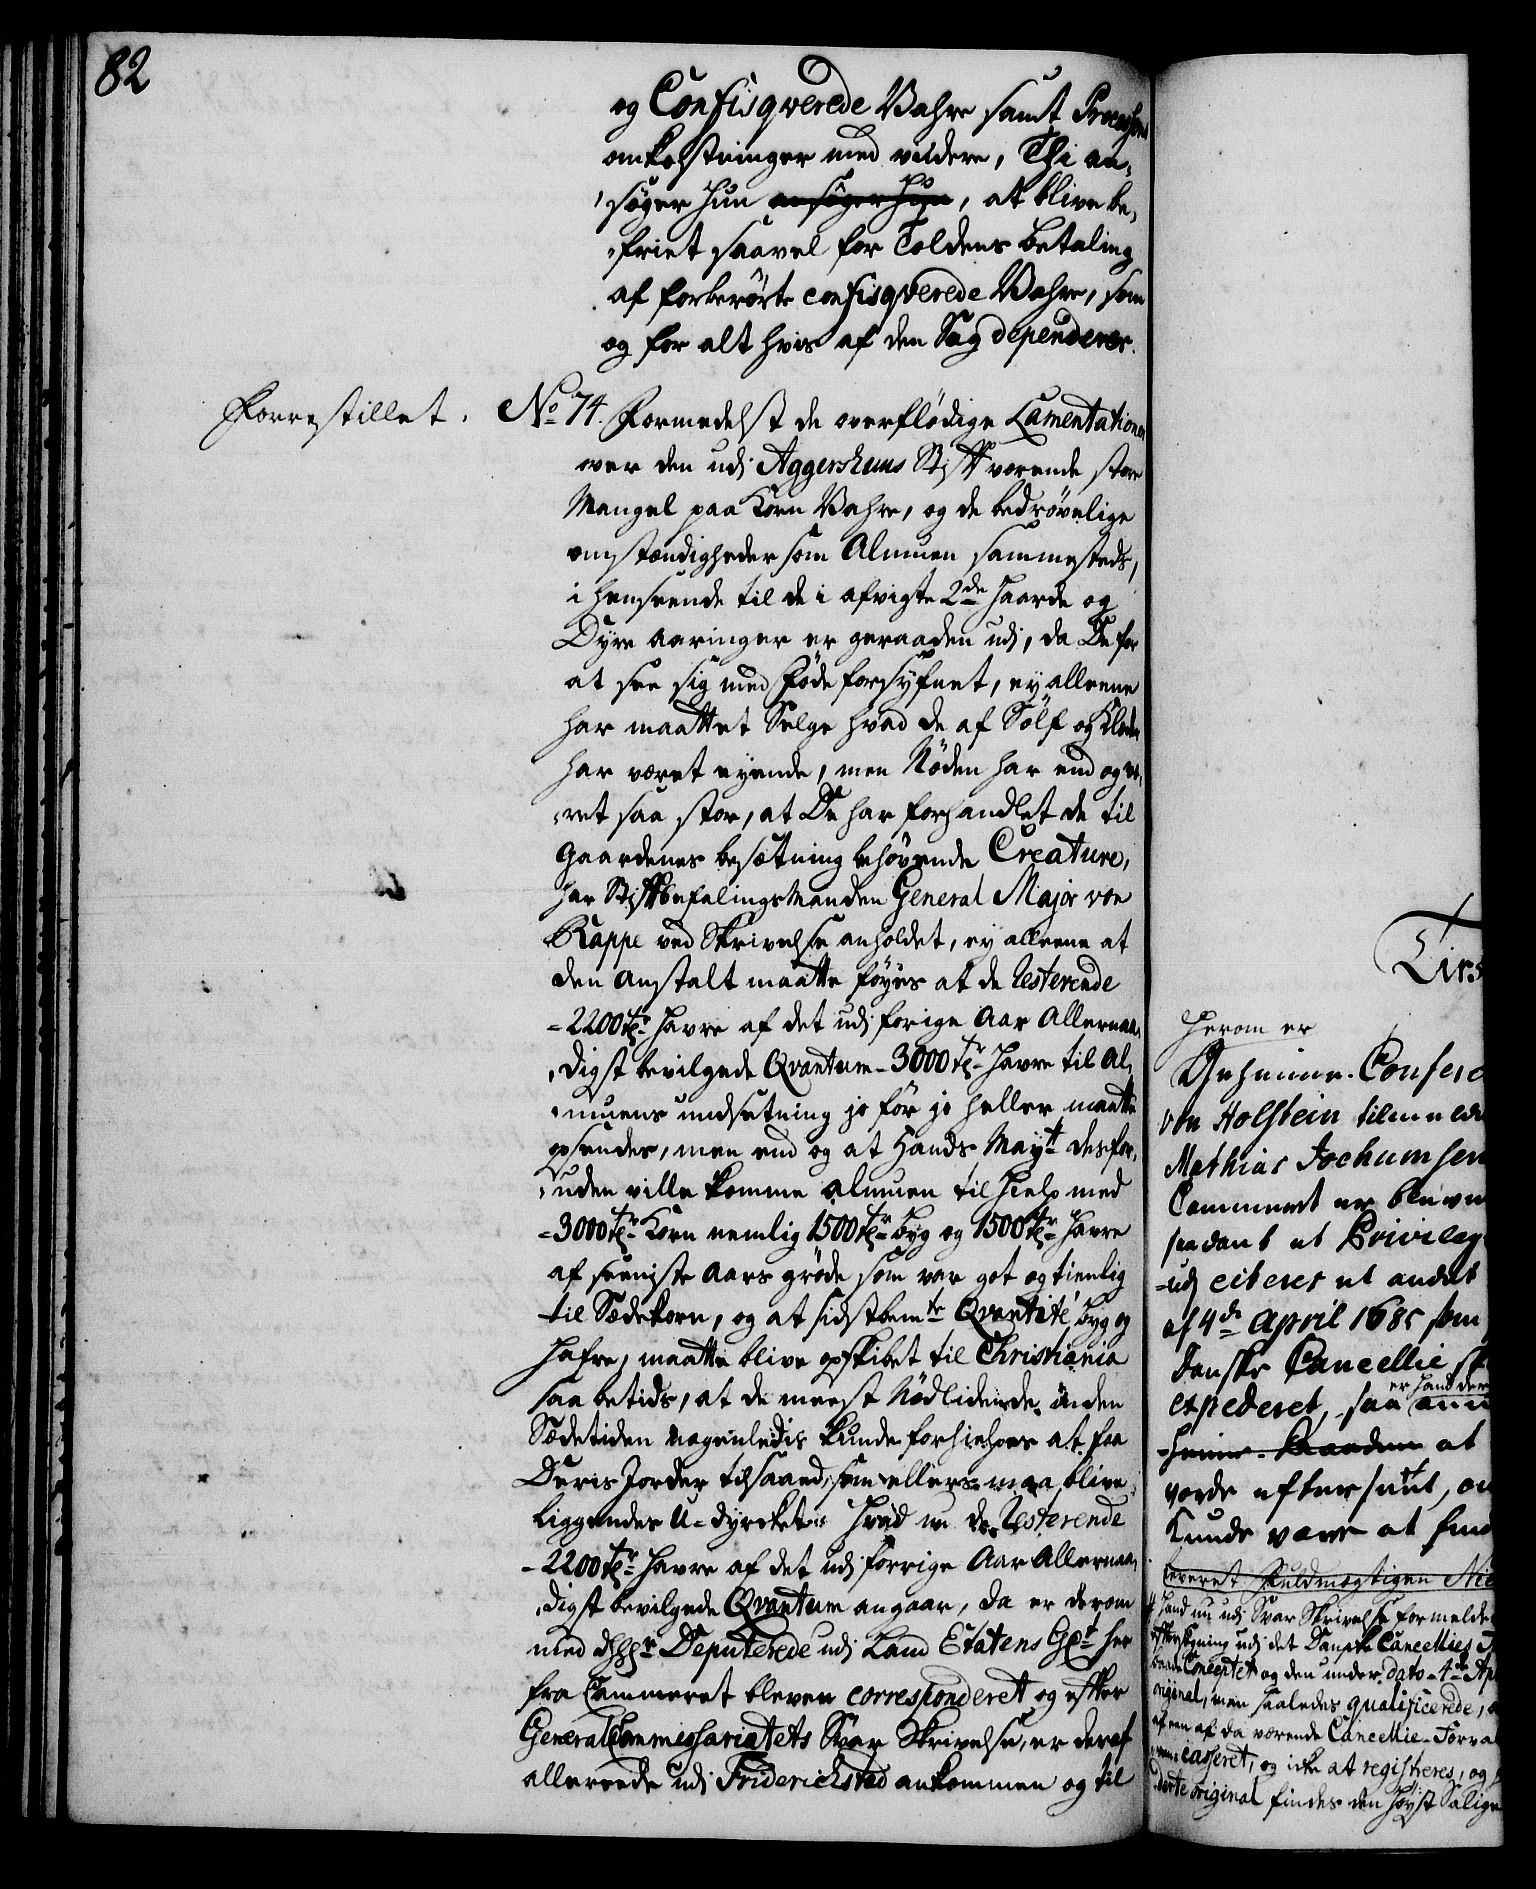 82
og Confisqverede Vahre samt Processens
omkostninger med videre, Thi an-
søger hun ansøger hun, at blive be-
friet saavel for Toldens betaling
af forberørte confisqverede Vahre, som
og for alt hvis af den Sag dependerer.
Forrestillet. No 74. Formedelst de overflødige Lamentationer
over den udj Aggershuus Stift værende store
Mangel paa Korn Vahre, og de bedrøvelige
omstændigheder som Almuen sammesteds,
i henseende til de i afvigte 2de haarde og
Dyre Aaringer er geraaden udj, da De for
at see sig med Føde forsyfnet, ey alleene
har maattet Selge hvad de af Sölf og Kleder
har været eyende, men Nöden har end og væ-
ret saa stor, at De har forhandlet de til
Gaardenes besætning behøvende Creature,
har Stiftbefalingsmanden General Major von
Rappe ved Skrivelse anholdet, ey alleene at
den Anstalt maatte föyes at de resterende
2200 tr. Havre af det udj forige Aar Allernaa-
digst bevilgede Qvantum 3000 tr. Havre til Al-
muens undsetning jo för jo heller maatte
opsendes, men end og at Hands Mayt desfor-
uden ville komme Almuen til hielp med
3000 tr. Korn nemlig 1500 tr. Byg og 1500 tr. Havre
af seeniste Aars gröde som var got og tienlig
til Sædekorn, og at sidstbemte Qvantité Byg og
Hafre, maatte blive opskibet til Christiania
saa betids, at de meest Nödlidende inden
Sædetiden nogenledis kunde forhielpes at faa
Deris Jorder tilsaaed, som ellers maa blive
liggendes U-dyrcket. Hvad nu de resterende
2200 tr. Havre af det udj forrige Aar Allernaa-
digst bevilgede Qvantum angaar, da er derom
med dhhr. Deputerede udj Land Etatens Gt her
fra Cammeret bleven corresponderet og efter
General Commissariatets Svar Skrivelse, er deraf
allereede udj Friderichstad ankommen og til
Tirs
Herom er
Geheime-Confere
von Holstein tilmelde
Mathias Jochumsen
Cammeret er bleven
saadant et Privileg
udj citeres et andet
af 4de April 1685 som
danske Cancellie
expederet, saa er hand der
Heime-Raaden at
vorde eftersent, om
Kunde være at find
leveret Fuldmægtigen Nie
Hand nu udj Svar Skrivelse formelder
eftersögning udj det Danske Cancellies
baade Conceptet og den under dato 4de Ap
original, men saaledes qualificerede,
af een af da værende Cancellie-Forva
casseret, og icke at registreres, og
original findes den Höyst Salige